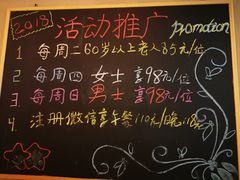 2018 活动推广 promotion
1 每周二60岁以上老人85元/位
2 每周四 女士 享98元/位
3 每周日 男士 享98元/位
4. 注册微信享午餐110元/晚118元